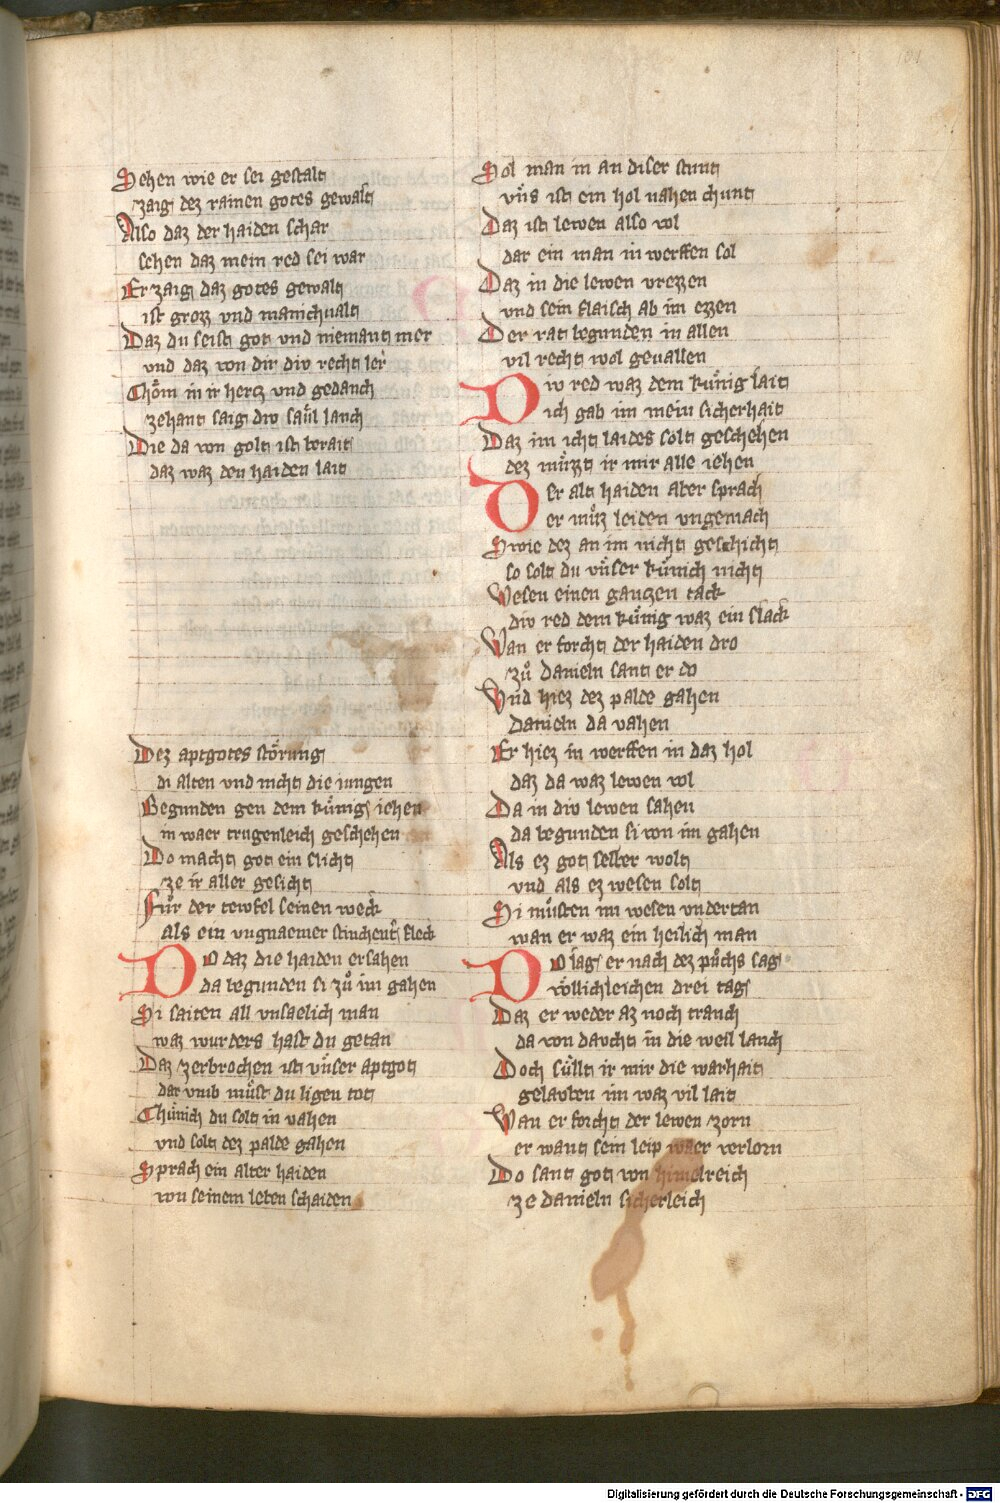 Sehen wie er sei gestalt
zaig dez rainen gotes gewalt
Also daz der haiden schar
sehen daz mein red sei war
Er zaig daz gotes gewalt
ist grozz vnd manichualt
Daz du seist got vnd niemant mer
vnd daz von dir div recht ler
Chöm in ir hertz vnd gedanch
zehant saig div saͤul lanch
Die da von golt ist berait
daz waz den haiden lait
Dez aptgotes störung
di alten vnd nicht die iungen
Begunden gen dem kuͤnig iehen
in waer trugenleich geschehen
Do macht got ein slicht
ze ir aller gesicht
Fuͤr der tewfel seinen weck
als ein vngnaemer stinchent fleck
DO daz die haiden ersahen
da begunden si zuͦ im gahen
Si saiten all vnsaelich man
waz wurders hast du getan
Daz zerbrochen ist vnͤser aptgot
dar vmb muͤst du ligen tot
Chuͤnich du solt in vahen
vnd solt dez palde gahen
Sprach ein alter haiden
von seinem leben schaiden
Sol man in an diser stunt
vnͤs ist ein hol nahen chunt
Daz ist lewen also vol
dar ein man in werffen sol
Daz in die lewen vrezzen
vnd sein flaisch ab im ezzen
Der rat begunden in allen
vil recht wol geuallen
Div red waz dem kuͤnig lait
ich gab im mein sicherhait
Daz im icht laides solt geschehen
dez muͤzzt ir mir alle iehen
Der alt haiden aber sprach
er muͤz leiden vngemach
Swie dez an im nicht geschicht
so solt du vnͤser kuͤnich nicht
Wesen einen gantzen tack
div red dem kuͤnig waz ein slack
Wan er forcht der haiden dro
zuͦ danieln sant er do
Vnd hiez dez palde gahen
Danieln da vahen
Er hiez in werffen in daz hol
daz da waz lewen vol
Da in div lewen sahen
da begunden si von im gahen
Als ez got selber wolt
vnd als ez wesen solt
Si muͤsten im wesen vndertan
wan er waz ein heilich man
DO lag er nach dez puͦchs sag
völlichleichen drei tag
Daz er weder az noch tranch
da von daucht in die weil lanch
Doch suͤllt ir mir die warhait
gelauben im waz vil lait
Wan er forcht der lewen zorn
er want sein leip waer verlorn
Do sant got von himelreich
ze danieln sicherleich
Digitalisierung gefördert durch die Deutsche Forschungsgemeinschaft - DFG